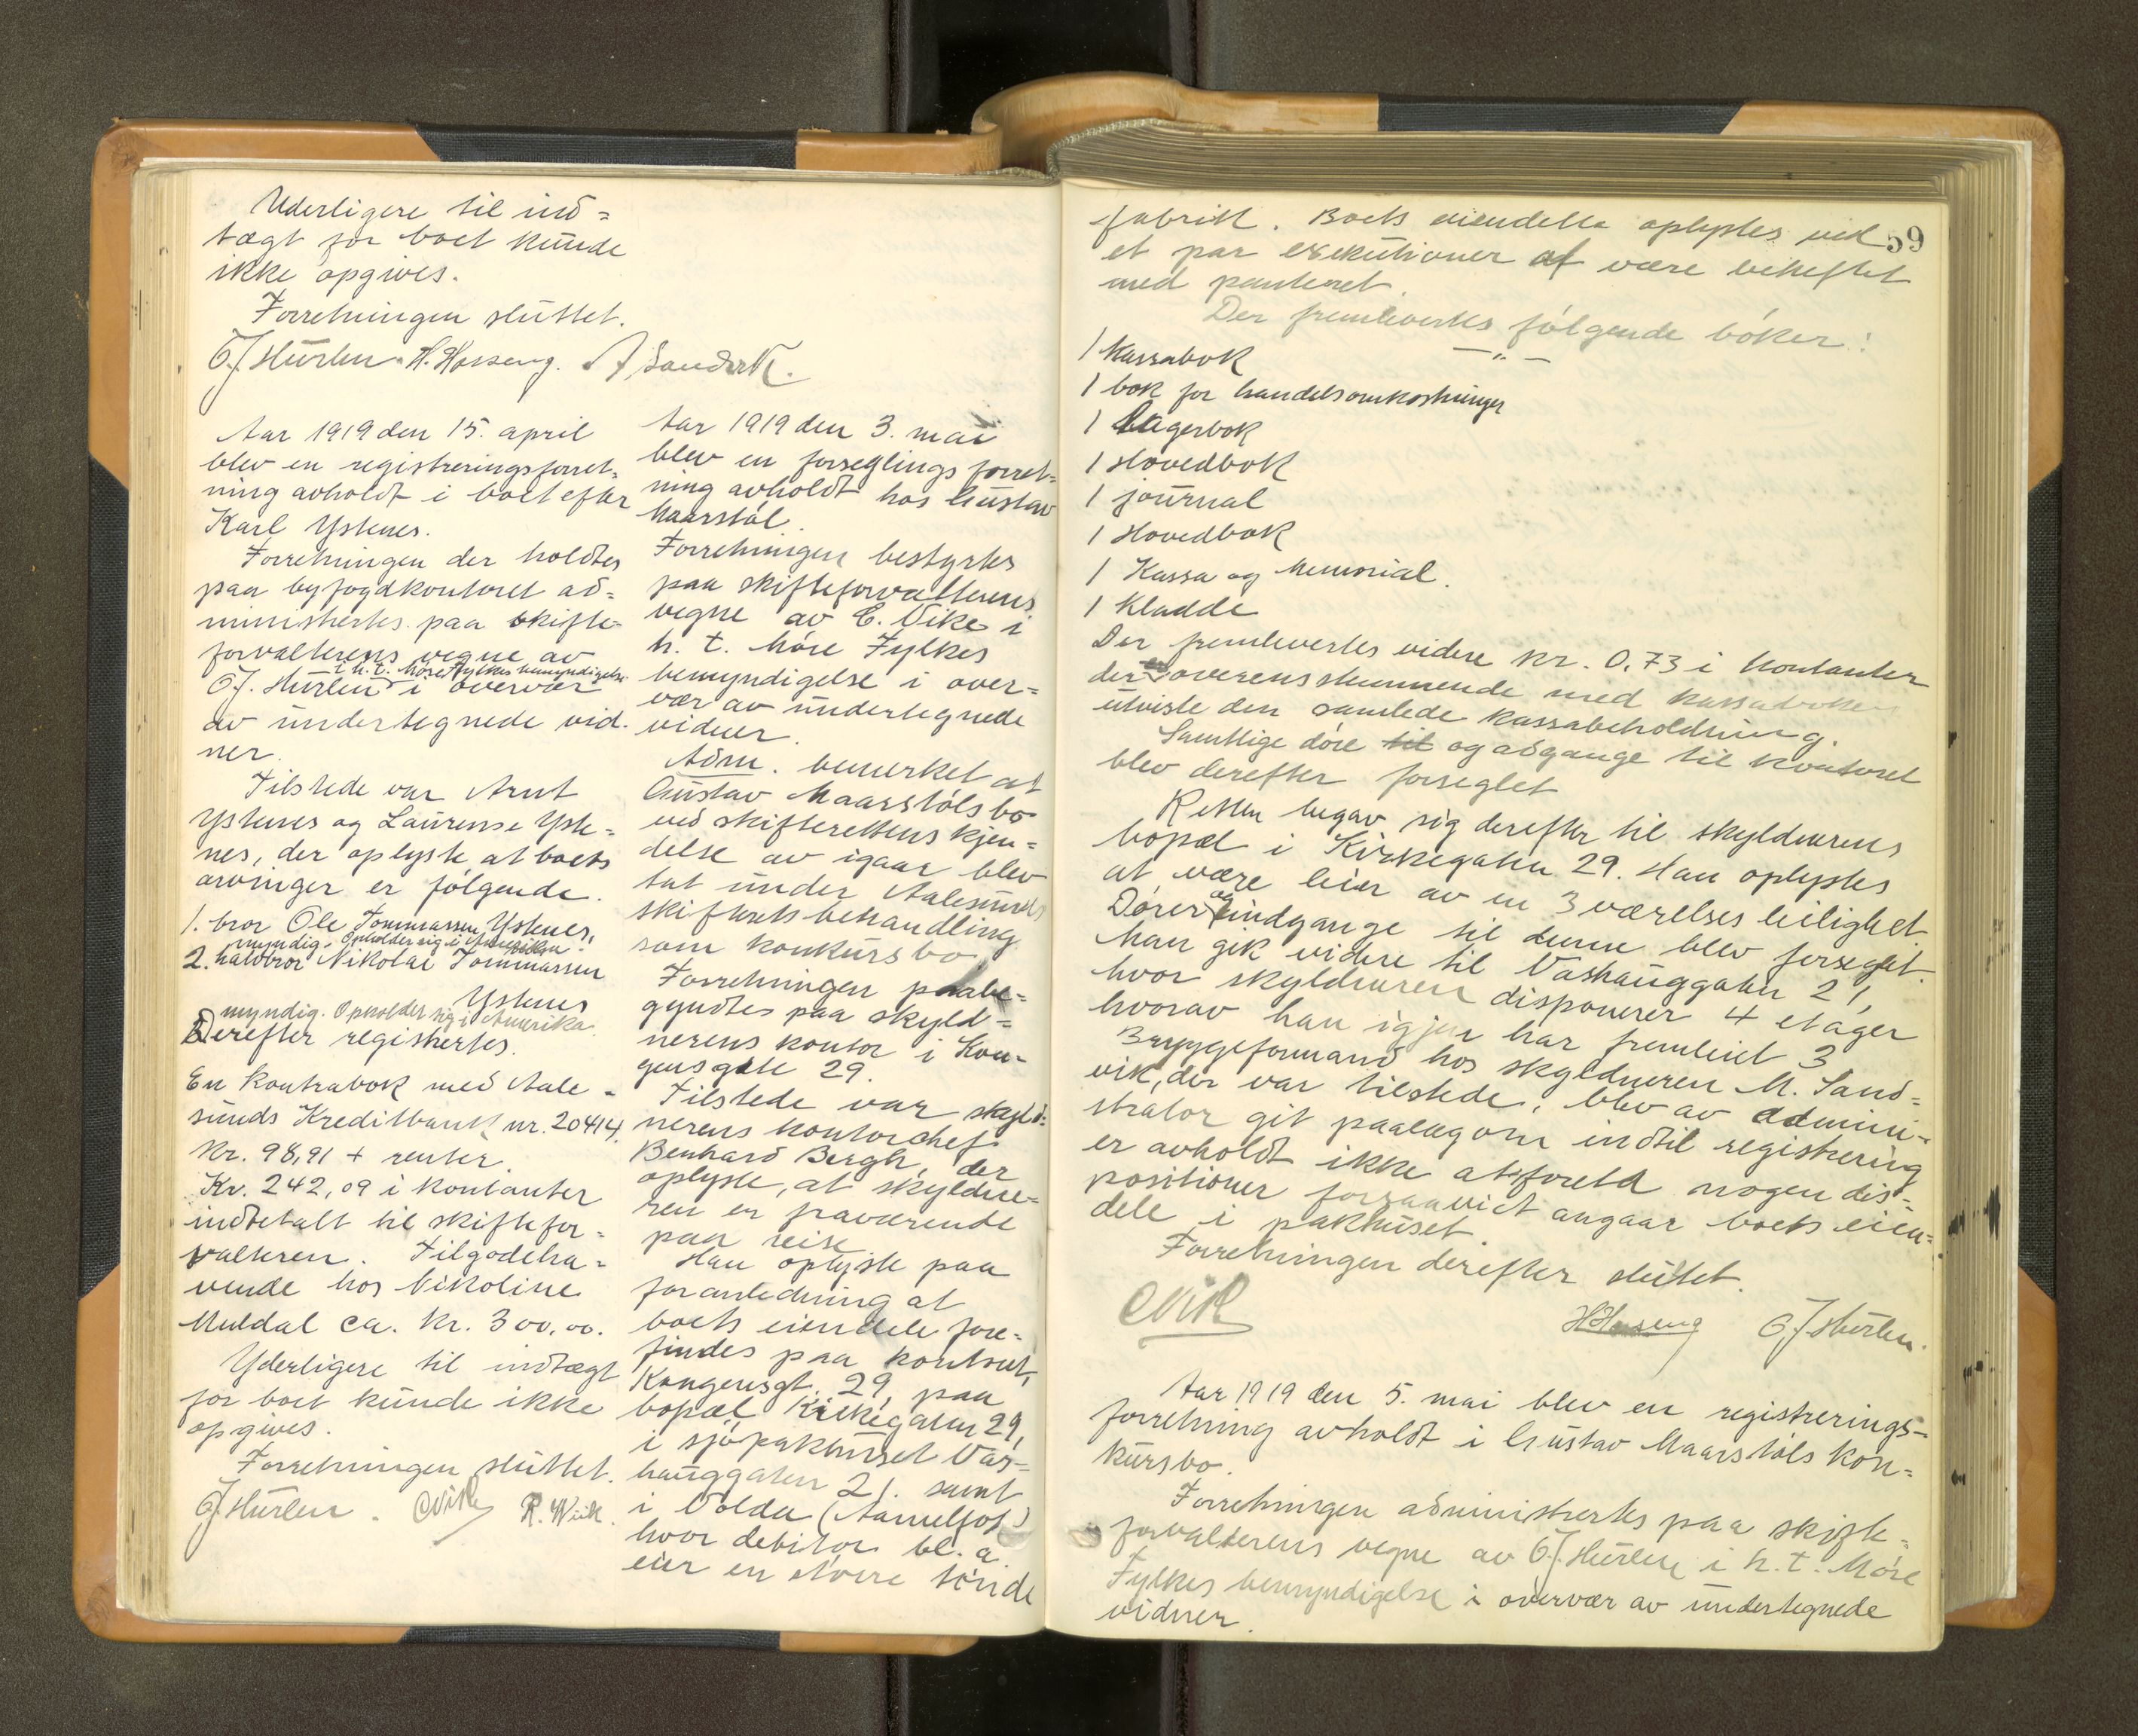 Yderligere til ind=
tægt for boet kunde
ikke opgives.
Forretningen sluttet.
O.J. Hurlen. H. Hosseng. A Sandvik.
Aar 1919 den 15. april
blev en registreringsforret=
ning avholdt i boet efter
Karl Ystenes.
Forretningen der holdtes
paa byfogdkontoret ad=
ministrertes paa skifte-
forvalterens vegne av
i h. t. Møre Fylkes bemyndigelse
O.J. Hurlen i overvær
av undertegnede vid.
ner.
Tilstede var Arnt
Ystenes og Laurense Yste=
nes, der oplyste at boets
arvinger er følgende.
1. bror Ole Tommassen Ystenes,
myndig. Opholder sig i Amerika
2. halvbror Nikolai Tommassen
Ystenes
myndig. Opholder sig i Amerika.
Derefter registrertes.
En kontrabok med Aale-
sunds Kreditbank nr. 20414,
kr. 98,91 + renter.
Kr. 242,09 i kontanter
indbetalt til skiftefor=
valteren. Tilgodeha=
vende hos Nikoline
Muldal ca. kr. 300,00.
Yderligere til indtægt
for boet kunde ikke
opgives.
Forretningen sluttet.
O.J. Hurlen. CVik R. Wiik.
Aar 1919 den 3. mai
blev en forseglingsforret=
ning avholdt hos Gustav
Maarstøl.
Forretningen bestyrtes
paa skifteforvalterens
vegne av C. Vike i
h. t. Møre Fylkes
bemyndigelse i over=
vær av undertegnede
vidner.
Adm. bemerket at
Gustav Maarstøls bo
ved skifterettens kjen=
delse av igaar blev
tat under Aalesunds
skifterets behandling
som konkursbo
Forretningen paabe=
gyndtes paa skyld=
nerens kontor i Kon-
gensgate 29.
Tilstede var skyld=
nerens kontorchef
Benhard Bergh, der
oplyste, at skyldne=
ren er fraværende
paa reise
Han oplyste paa
foranledning at
boets eiendele fore=
findes paa kontoret,
Kongensgt. 29, paa
bopæl Kirkegaten 29,
i sjøpakhuset Vas=
hauggaten 21. samt
i Volda (Aamelfot)
hvor debitor bl. a.
eier en større tønde
59
fabrik. Boets eiendele oplystes ved
et par exekutioner at være beheftet
med panteret.
Der fremlevertes følgende bøker:
— " —
1 Kassabok
1 bok for handelsomkostninger
1 Lagerbok
1 Hovedbok
1 journal
1 Hovedbok
1 Kassa og Memorial.
1 Kladde
Der fremlevertes videre kr. 0,73 i kontanter
der overensstemmende med kassaboken
utviste den samlede kassabeholdning.
Samtlige døre til og adgange til kontoret
blev derefter forseglet
Retten begav sig derefter til skyldnerens
bopæl i Kirkegaten 29. Han oplystes
at være leier av en 3 værelses leilighet.
Dører og indgange til denne blev forseglet.
Man gik videre til Vashauggaten 21,
hvor skyldneren disponerer 4 etager
hvorav han igjen har fremleiet 3
Bryggeformand hos skyldneren M. Sand=
vik, der var tilstede, blev av admini=
strator git paalæg om indtil registrering
er avholdt ikke at foreta nogen dis=
positioner forsaavidt angaar boets eien=
dele i pakhuset.
Forretningen derefter sluttet.
CVik
HHosseng O.J. Hurlen.
Aar 1919 den 5. mai blev en registrerings-
forretning avholdt i Gustav Maarstøls kon=
kursbo.
Forretningen administrertes paa skifte=
forvalterens vegne av O.J. Hurlen i h. t. Møre
Fylkes bemyndigelse i overvær av undertegnede
vidner.